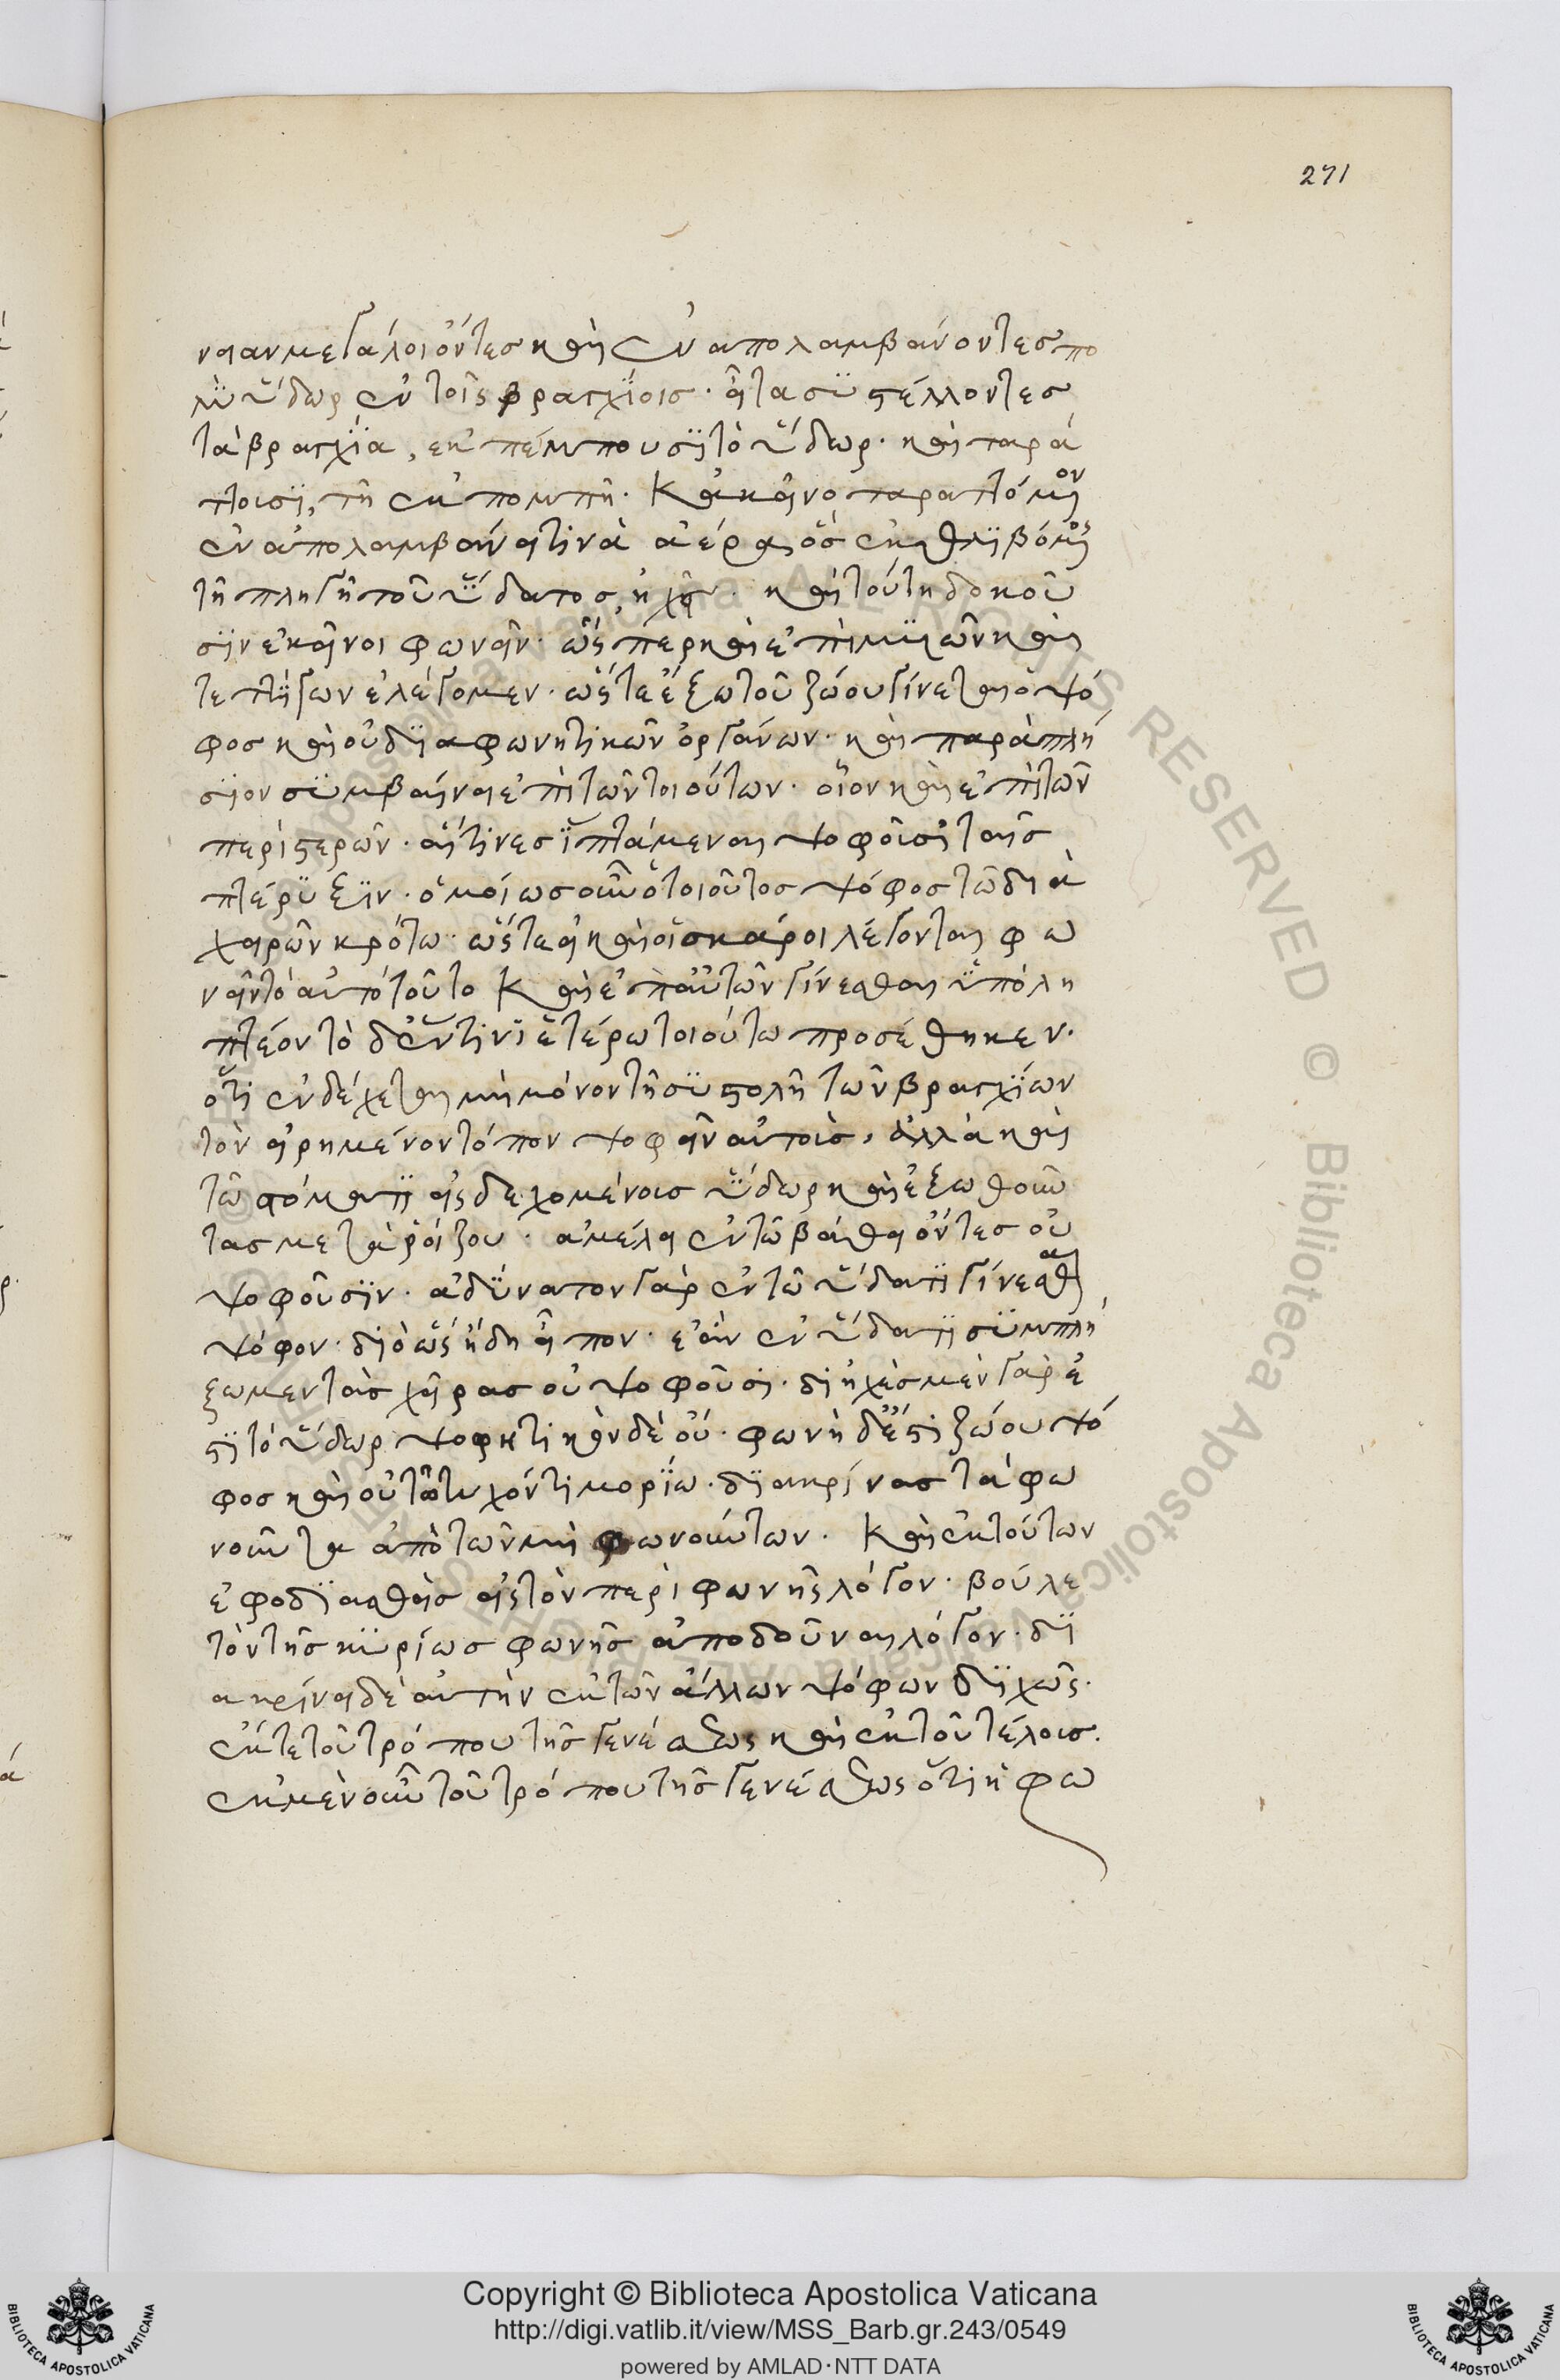 271
ναι ἂν μεγάλοι ὄντες καὶ ἐναπολαμβάνοντες πο
λὺ ὕδωρ ἐν τοῖς βραγχίοις. εἶτα συστέλλοντες
τὰ βράγχια, ἐκπέμπουσι τὸ ὕδωρ. καὶ ταρά
ττουσι, τῇ ἐκπομπῇ. κἀκεῖνο ταραττόμενον
ἐναπολαμβάνει τινὰ ἀέρα, ὃς ἐκθλιβόμενος
τῇ πληγῇ τοῦ ὕδατος, ἠχεῖ. καὶ τούτῃ δοκοῦ
σιν ἐκεῖνοι φωνεῖν. ὥσπερ καὶ ἐπὶ μυιῶν καὶ
τεττίγων ἐλέγομεν. ὥστε ἔξω τοῦ ζώου γίνεται ὁ ψό
φος καὶ οὐ διὰ φωνητικῶν ὀργάνων. καὶ παραπλή
σιον συμβαίνει ἐπὶ τῶν τοιούτων. οἷον καὶ ἐπὶ τῶν
περιστερῶν. αἵτινες ἱπτάμεναι ψοφοῦσι ταῖς
πτέρυξιν. ὅμοιος οὖν ὁ τοιοῦτος ψόφος τῷ διὰ
χειρῶν κρότῳ. ὥστε εἰ καὶ οἱ σκάροι λέγονται φω
νεῖν τὸ αὐτὸ τοῦτο καὶ ἐπ' αὐτῶν γίνεσθαι ὑπολη
πτέον τὸ δ' ἔν τινι ἑτέρῳ τοιούτῳ προσέθηκεν.
ὅτι ἐνδέχεται μὴ μόνον τῇ συστολῇ τῶν βραγχίων
τὸν εἰρημένον τόπον ψοφεῖν αὐτοὺς, ἀλλὰ καὶ
τῷ στόματι εἰσδεχομένους ὕδωρ καὶ ἐξωθοῦν
τας μετὰ ῥοίζου. ἀμέλει ἐν τῷ βάθει ὄντες οὐ
ψοφοῦσιν. ἀδύνατον γὰρ ἐν τῷ ὕδατι γίνεσθαι
ψόφον. διὸ ὡς ἤδη εἶπον. ἐὰν ἐν ὕδατι συμπλή
ξωμεν τὰς χεῖρας οὐ ψοφοῦσι. διηχὲς μὲν γάρ ἐ
στι τὸ ὕδωρ ψοφητικὸν δὲ οὔ. φωνὴ δέ ἐστι ζώου ψό
φος καὶ οὐ τῷ τυχόντι μορίῳ. διακρίνας τὰ φω
νοῦντα ἀπὸ τῶν μὴ φωνούντων. καὶ ἐκ τούτων
ἐφοδιασθεὶς εἰς τὸν περὶ φωνῆς λόγον. βούλε
τὸν τῆς κυρίως φωνῆς ἀποδοῦναι λόγον. δι
ακρίνει δὲ αὐτὴν ἐκ τῶν ἄλλων ψόφων διχῶς.
ἔκ τε τοῦ τρόπου τῆς γενέσεως καὶ ἐκ τοῦ τέλους.
ἐκ μὲν οὖν τοῦ τρόπου τῆς γενέσεως ὅτι ἡ φω
Copyright © Biblioteca Apostolica Vaticana
http://digi.vatlib.it/view/MSS_Barb.gr.243/0549
powered by AMLAD·NTT DATA